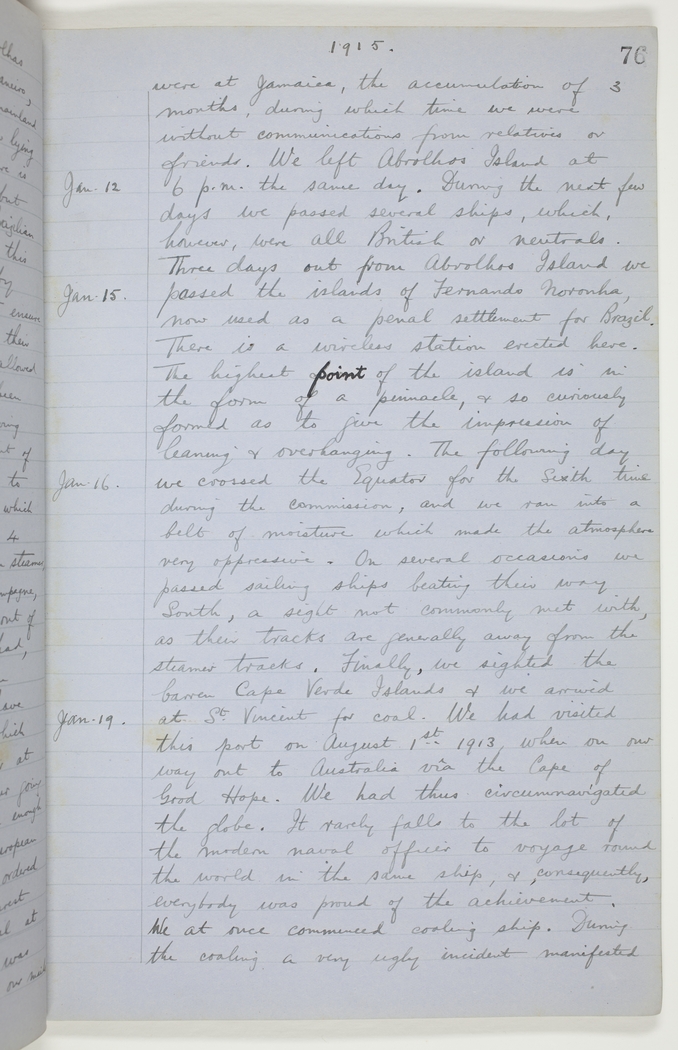 1915.
76
were at Jamaica, the accumulation of 3
months, during which time we were
without communications from relatives or
friends. We left Abrolhos Island at
Jan. 12 6 p.m. the same day. During the next few
days we passed several ships, which,
however, were all British or neutrals.
Three days out from Abrolhos Island we
Jan. 15. passed the islands of Fernando Noronha,
now used as a penal settlement for Brazil.
There is a wireless station erected here.
The highest point of the island is in
the form of a pinnacle, & so curiously
formed as to give the impression of
leaning & overhanging. The following day
Jan. 16. we crossed the Equator for the Sixth time
during the commission, and we ran into a
belt of moisture which made the atmosphere
very oppressive. On several occasions we
passed sailing ships beating their way
South, a sight not commonly met with,
as their tracks are generally away from the
steamer tracks. Finally, we sighted the
barren Cape Verde Islands & we arrived
Jan. 19. at St. Vincent for coal. We had visited
this port on August 1st 1913, when on our
way out to Australia via the Cape of
Good Hope. We had thus circumnavigated
the globe. It rarely falls to the lot of
the modern naval officer to voyage round
the world in the same ship, & consequently,
everybody was proud of the achievement.
We at once commenced coaling ship. During
the coaling a very ugly incident manifested